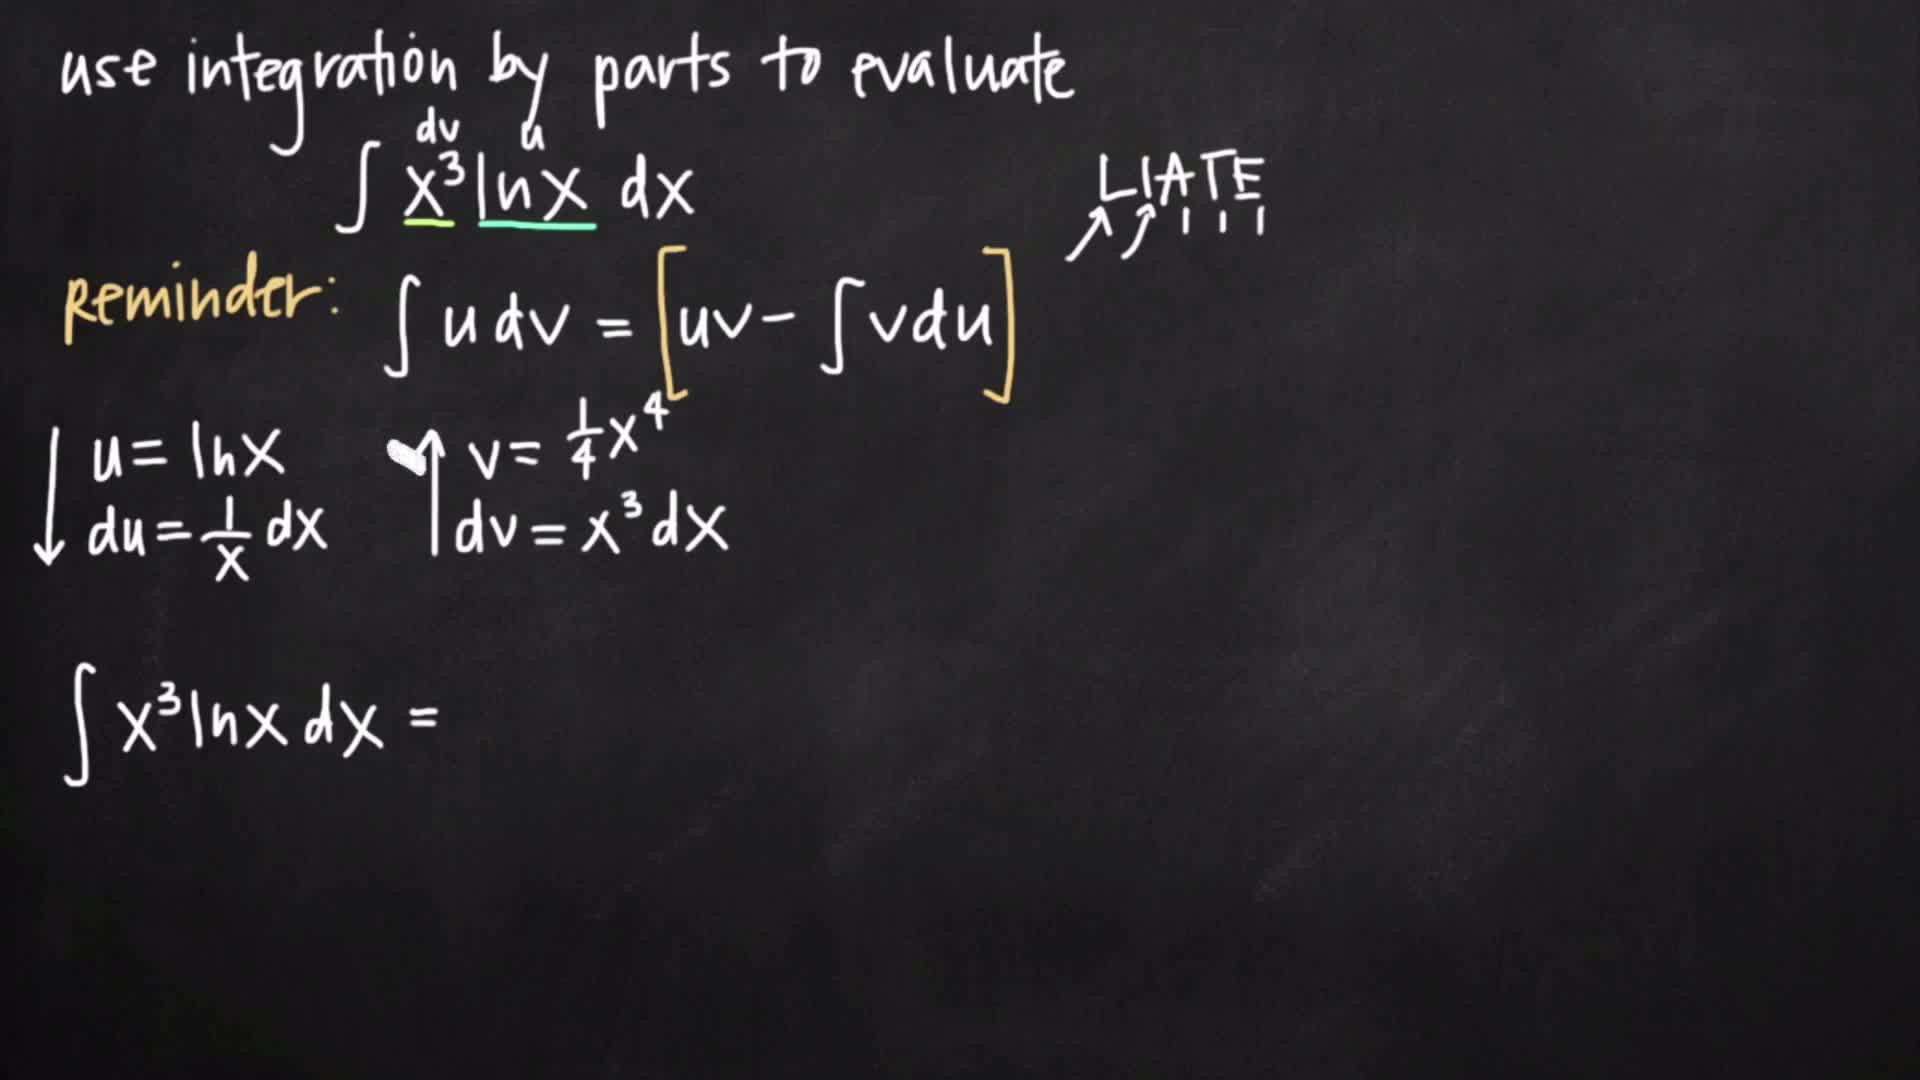 use integration by parts to evaluate
dv u
∫ x³ lnx dx
LIATE
Reminder: ∫ u dv = [uv - ∫ v du]
u = lnx v = 1/4 x⁴
du = 1/x dx dv = x³ dx
∫ x³ lnx dx =